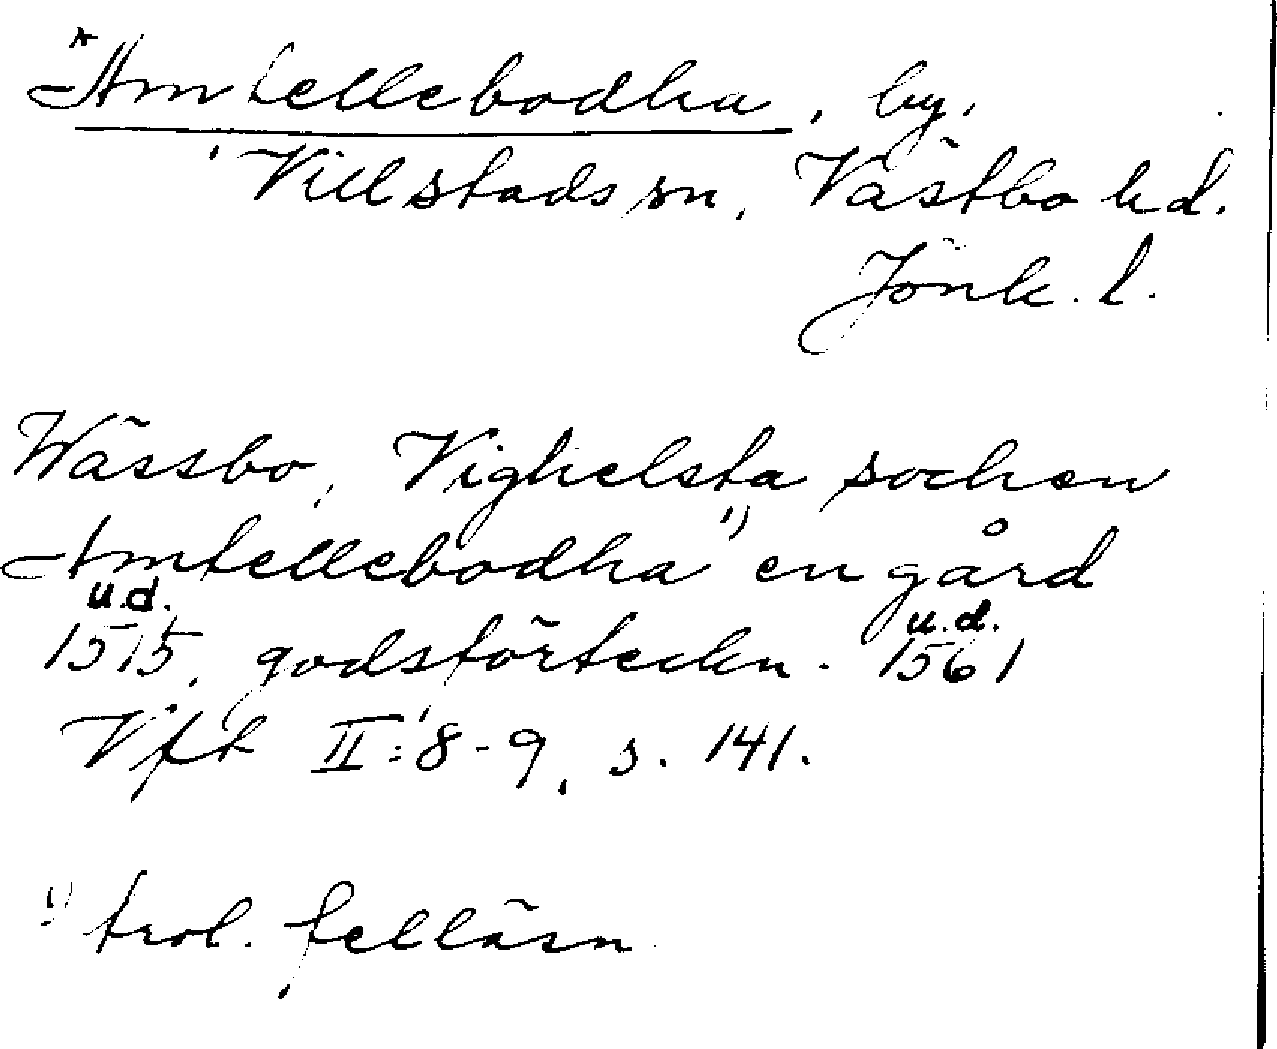 *Amtellebodha, by,
Villstads sn, Västbo hd.
Jönk. l.
Wässbo, Vighelsta sochen
Amtellebodha ¹) en gård
u.d. u.d.
1515, godsförteckn. 1561
Vft II:8-9, s. 141.
¹) trol. felläsn.